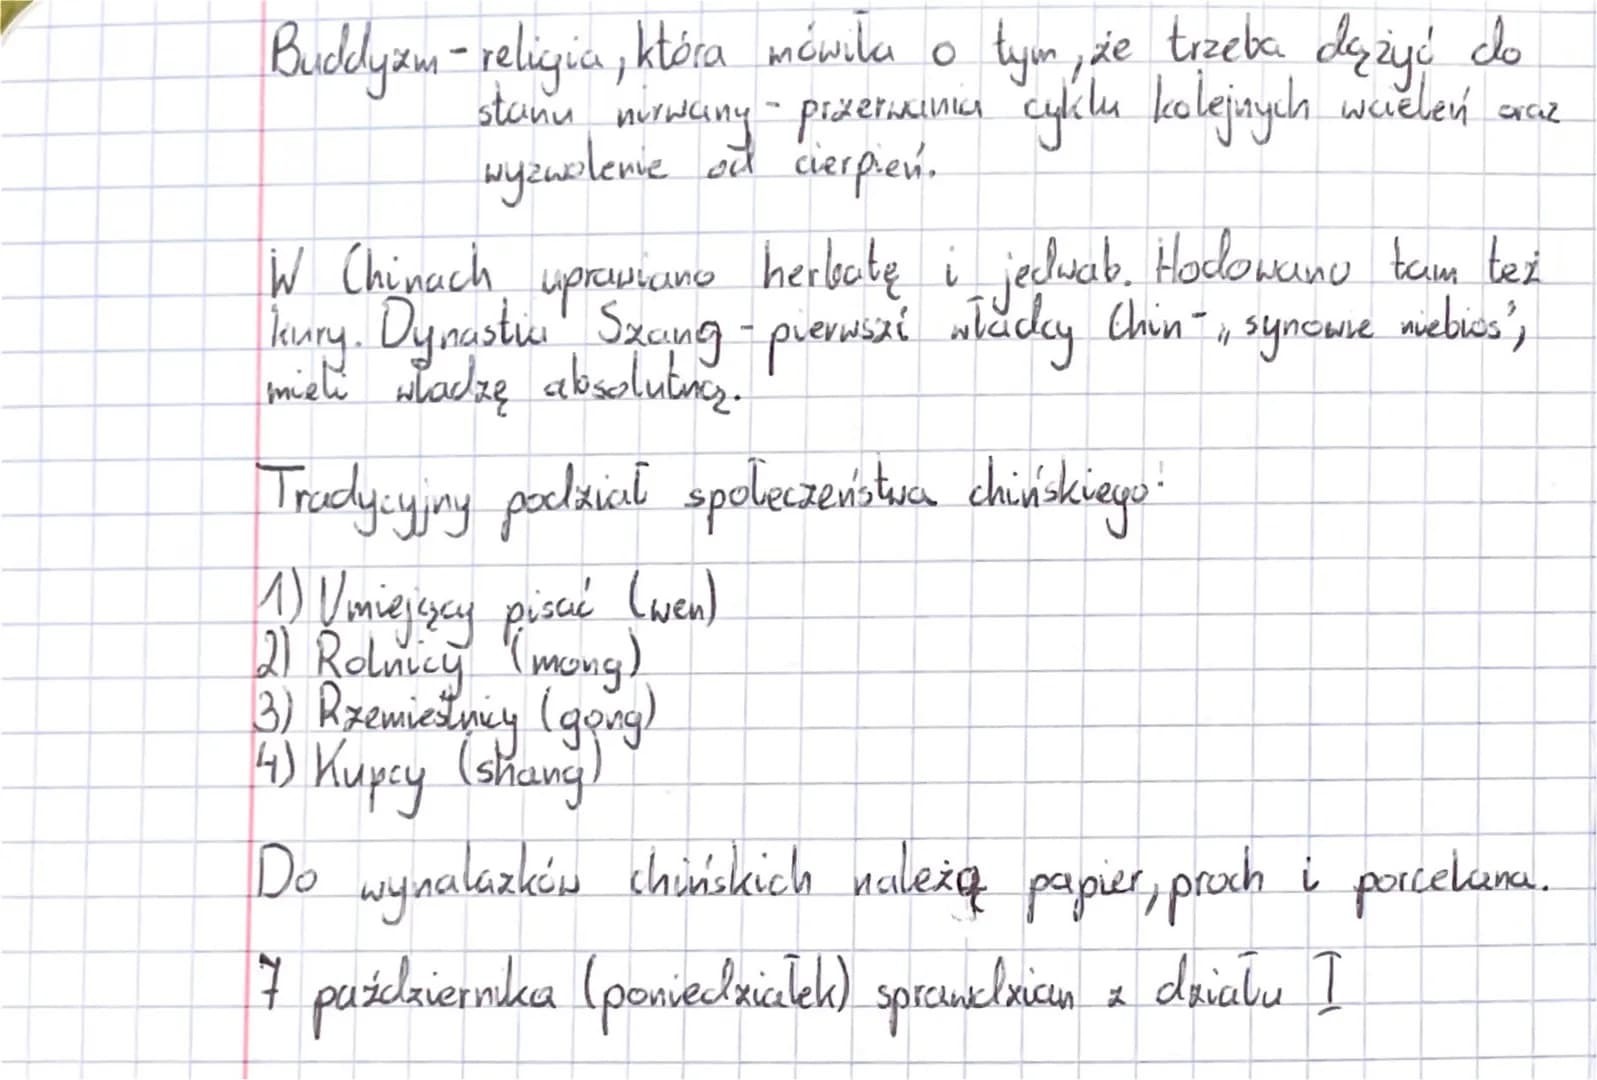 Buddyzm - religia, która mówiła o tym, że trzeba dążyć do
stanu nirwany - przerwania cyklu kolejnych wcieleń oraz
wyzwolenie od cierpień.
W Chinach uprawiano herbatę i jedwab. Hodowano tam też
kury. Dynastia Szang - pierwsi władcy Chin - „synowie niebios",
mieli władzę absolutną.
Tradycyjny podział społeczeństwa chińskiego:
1) Umiejący pisać (wen)
2) Rolnicy (mong)
3) Rzemieślnicy (gong)
4) Kupcy (shang)
Do wynalazków chińskich należą papier, proch i porcelana.
7 października (poniedziałek) sprawdzian z działu I